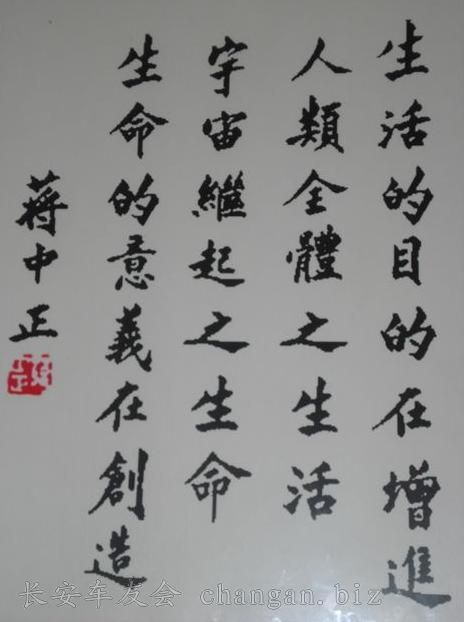 生活的目的在增進
人類全體之生活
宇宙繼起之生命
生命的意義在創造
蔣中正
长安车友会 changan.biz